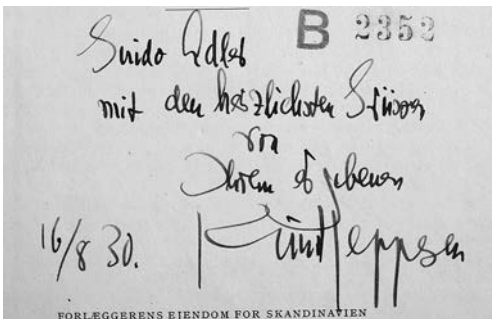 B 2352
Guido Adler
mit den herzlichsten Grüssen
von
Ihrem ergebenen
Knud Jeppesen
16/8 30.
FORLÆGGERENS EJENDOM FOR SKANDINAVIEN